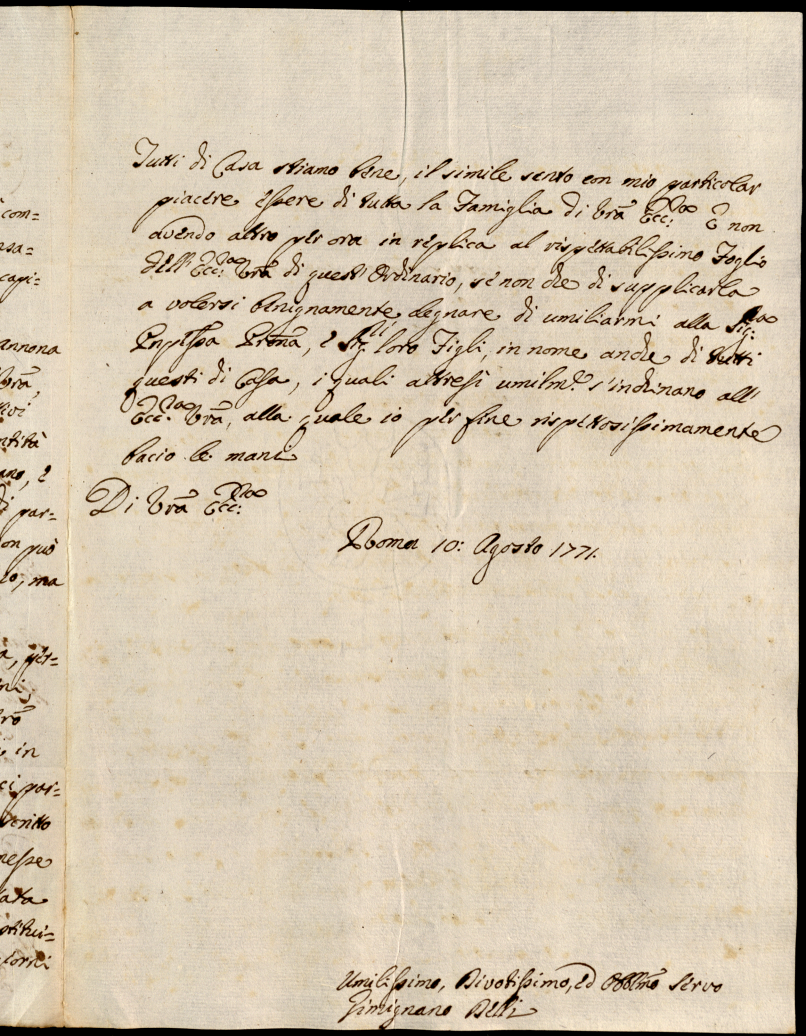 Tutti di Casa stiamo bene, il simile sento con mio particolar
piacere essere di tutta la Famiglia di Vrã Ecc:za E non
avendo altro per ora in replica al rispettabilissimo Foglio
dell'Ecc:za Vrã di quest'Ordinario, se non che di supplicarla
a volersi benignamente degnare di umiliarmi alla Sig:ra
Prnã, e Sig:ri loro Figli, in nome anche di tutti
questi di Casa, i quali altresì umilm:e s'inchinano all'
Ecc:za Vrã, alla quale io per fine rispettosissimamente
bacio le mani
Di Vrã Ecc:za
Roma 10: Agosto 1771.
Umilissimo, Divotissimo, ed Obblmo Servo
Gimignano Belli
com=
nsa=
capi=
annona
Vrã,
tivi
ntità
ano, e
di par=
on può
lo, ma
a, per=
ni,
in
ci par=
nesse
ata
stitui=
torni